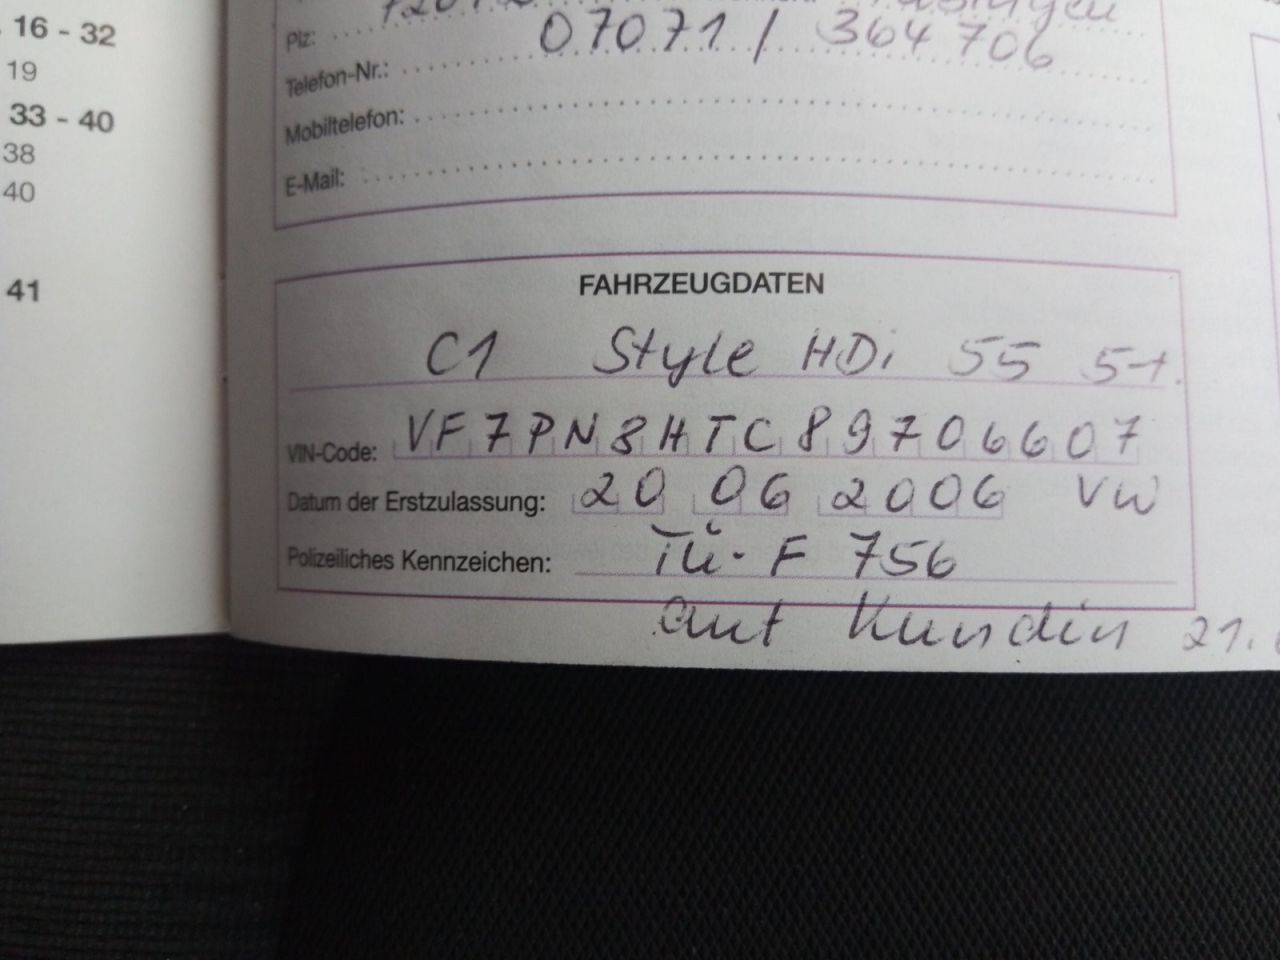 16 - 32
19
33 - 40
38
40
41
Plz:
Telefon-Nr.: 07071 / 364706
Mobiltelefon:
E-Mail:
FAHRZEUGDATEN
C1 Style HDi 55 5-t.
VIN-Code: VF7PN8HTC89706607
Datum der Erstzulassung: 20 06 2006 VW
Polizeiliches Kennzeichen: TÜ-F 756
Kundin 21.